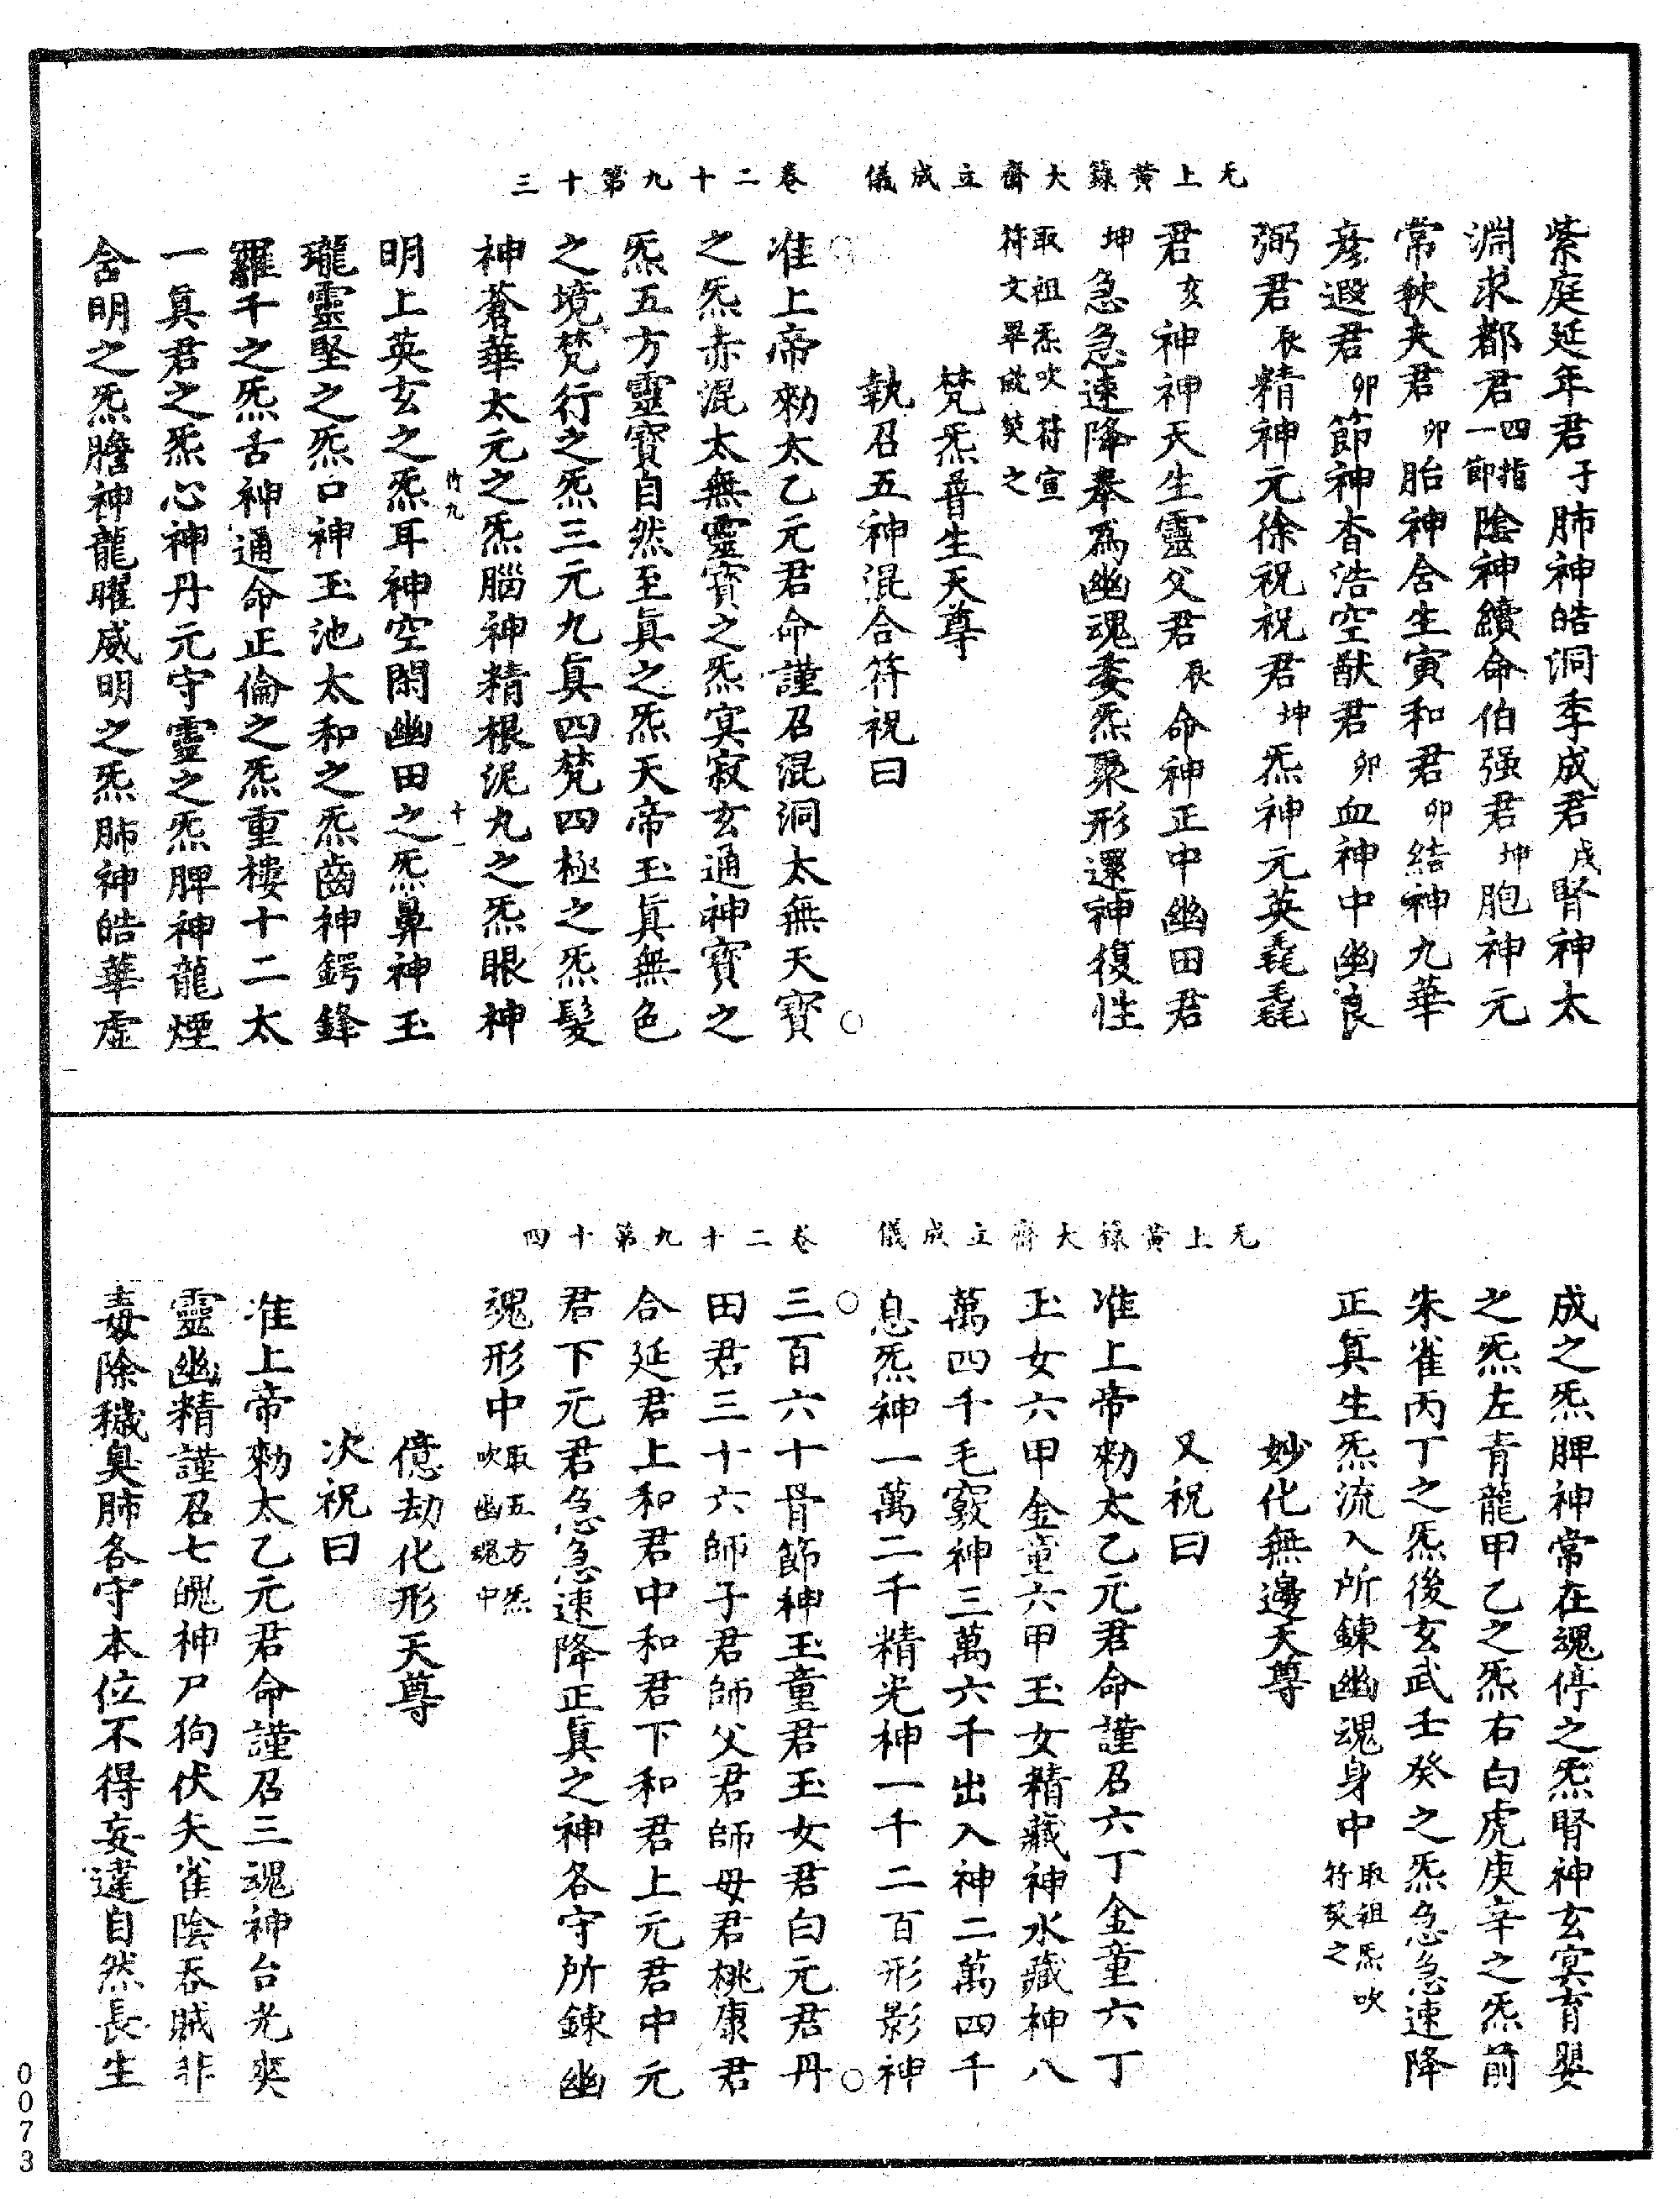 无上黃籙大齋立成儀 卷二十九第十三
紫庭延年君子肺神皓洞季成君戌腎神太
淵求都君四指一節陰神續命伯强君坤胞神元
常秋夫君卯胎神含生寅和君卯結神九華
彥遐君卯節神杳浩空猷君卯血神中幽良
弼君辰精神元徐祝祝君坤炁神元英毳毳
君亥神神天生靈父君辰命神正中幽田君
坤急急速降奉爲幽魂委炁聚形還神復性
取祖炁吹符宣
符文畢成焚之
梵炁普生天尊
執召五神混合符祝曰
准上帝勑太乙元君命謹召混洞太無天寶
之炁赤混太無靈寶之炁寞寂玄通神寶之
炁五方靈寶自然至眞之炁天帝玉眞無色
之境梵行之炁三元九眞四梵四極之炁髮
神蒼華太元之炁腦神精根泥丸之炁眼神
竹九 十一
明上英玄之炁耳神空閑幽田之炁鼻神玉
瓏靈堅之炁口神玉池太和之炁齒神鍔鋒
羅千之炁舌神通命正倫之炁重樓十二太
一眞君之炁心神丹元守靈之炁脾神龍煙
含明之炁膽神龍曜威明之炁肺神皓華虛
无上黃籙大齋立成儀 卷二十九第十四
成之炁脾神常在魂停之炁腎神玄寞育嬰
之炁左青龍甲乙之炁右白虎庚辛之炁前
朱雀丙丁之炁後玄武壬癸之炁急急速降
正眞生炁流入所鍊幽魂身中取祖炁吹符焚之
妙化無邊天尊
又祝曰
准上帝勑太乙元君命謹召六丁金童六丁
玉女六甲金童六甲玉女精藏神水藏神八
萬四千毛竅神三萬六千出入神二萬四千
息炁神一萬二千精光神一千二百形影神
三百六十骨節神玉童君玉女君白元君丹
田君三十六師子君師父君師母君桃康君
合延君上和君中和君下和君上元君中元
君下元君急急速降正眞之神各守所鍊幽
魂形中取五方炁吹幽魂中
億劫化形天尊
次祝曰
准上帝勑太乙元君命謹召三魂神台光爽
靈幽精謹召七魄神尸狗伏矢雀陰吞賊非
毒除穢臭肺各守本位不得妄違自然長生
0073